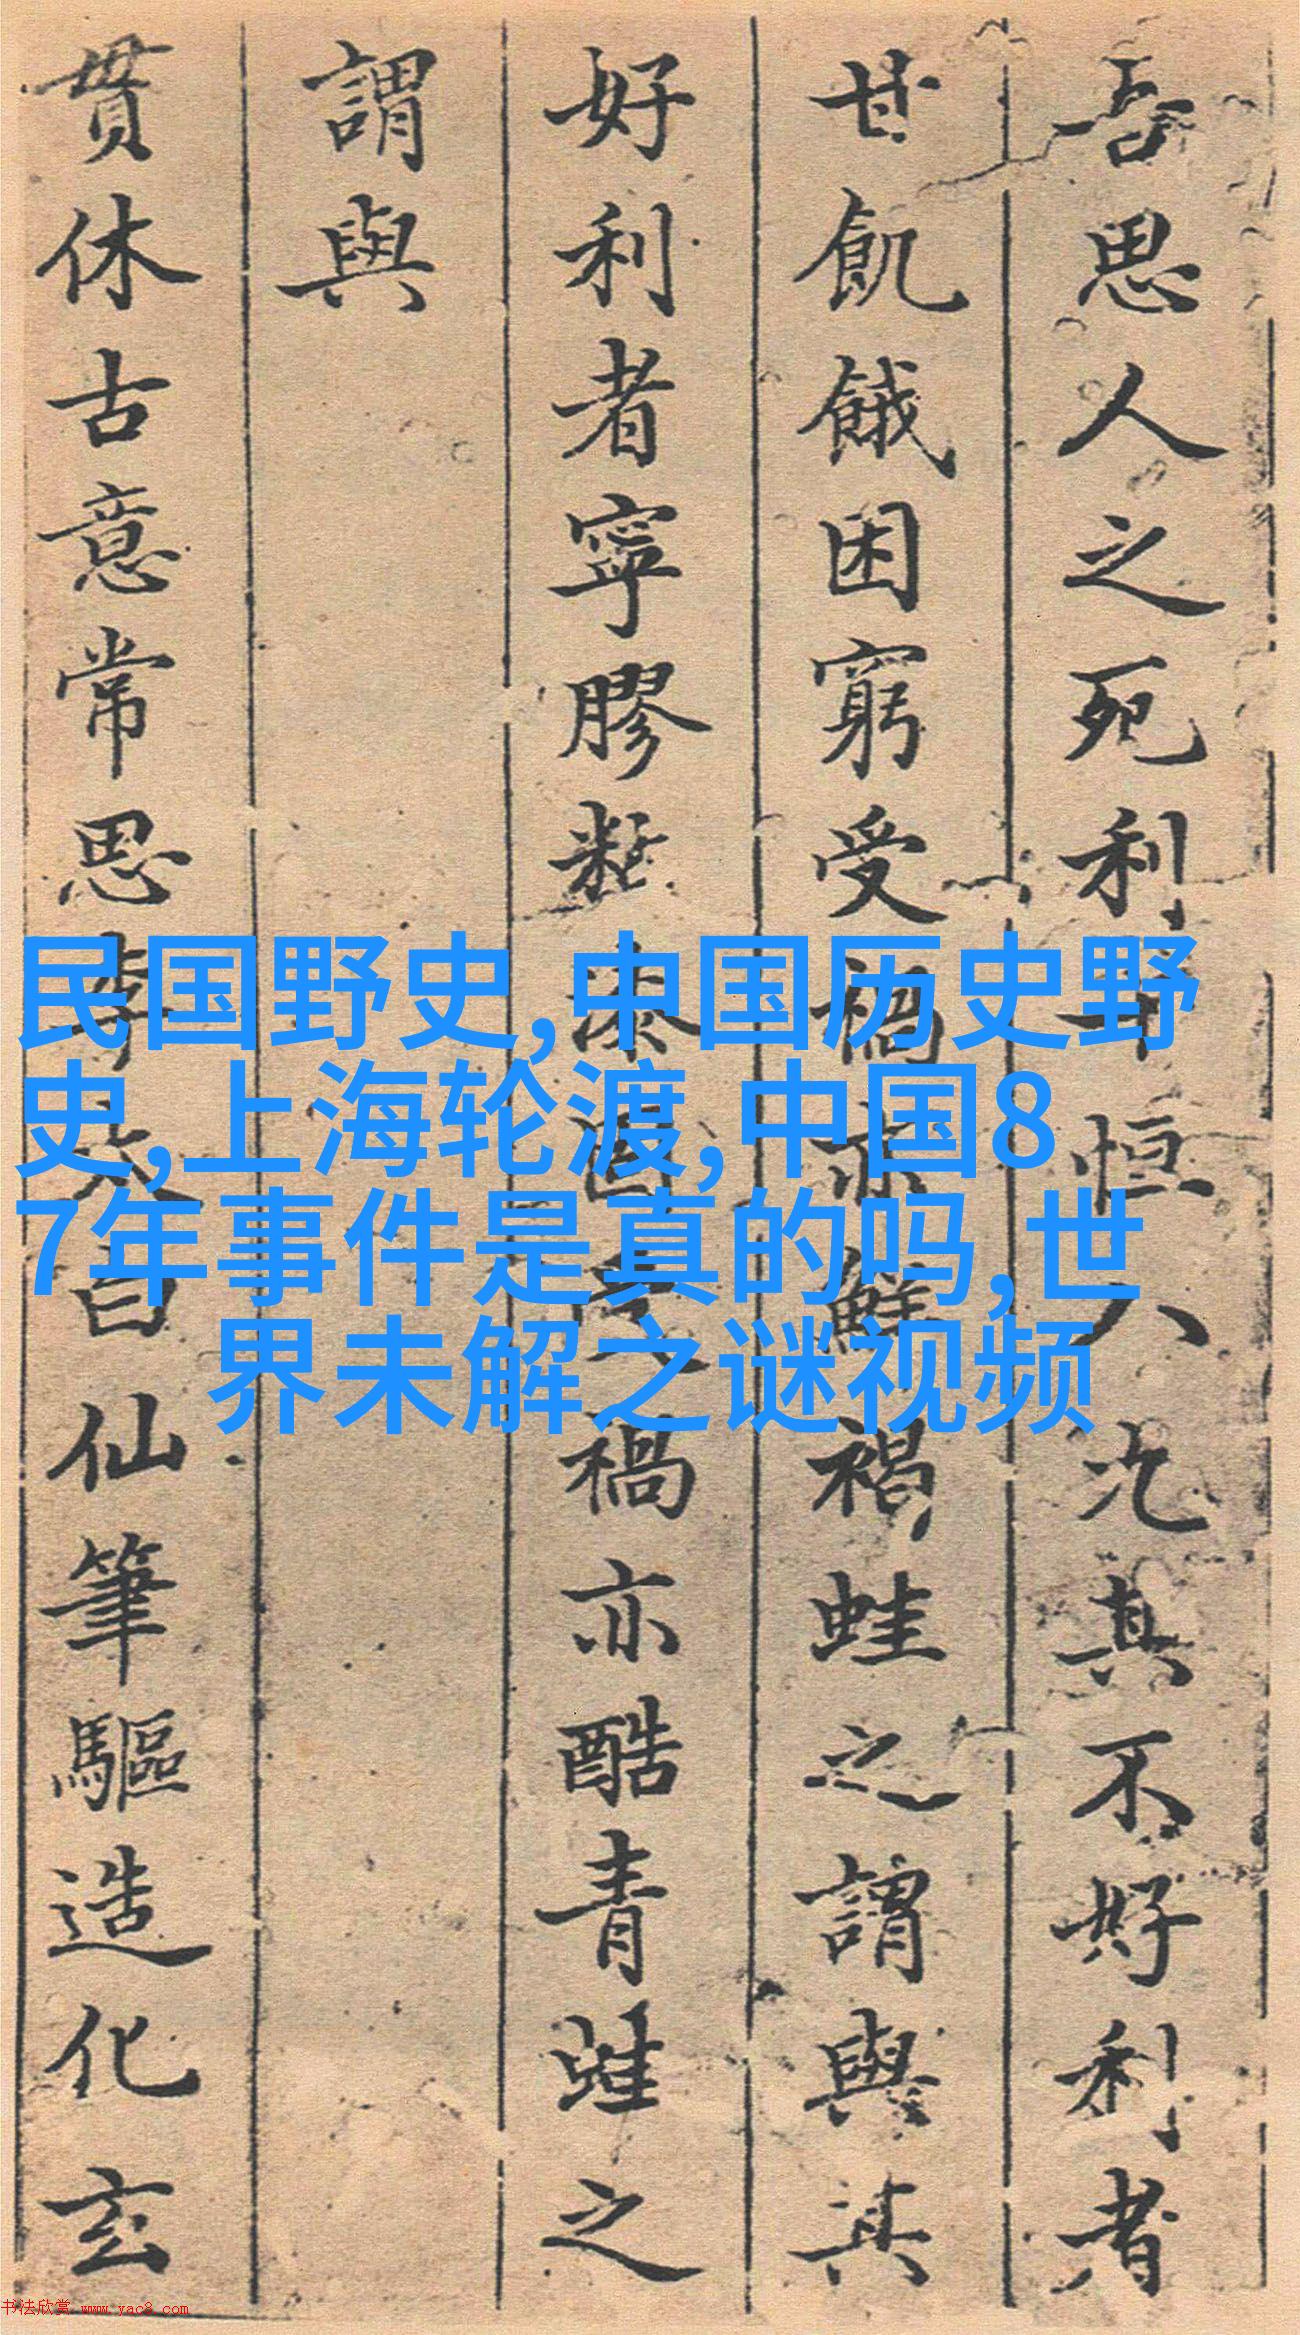 吾思人之死利十恒八九况其不好利者
甘飢餓困窮受禍亦鮮褐蛙之謂與其
好利者寧膠漆固禍亦酷青蛙之
謂與
貫休古意常思李太白仙筆驅造化玄
民国野史,中国历史野
史,上海轮渡,中国8
7年事件是真的吗,世
界未解之谜视频
书法欣赏 www.yac8.com